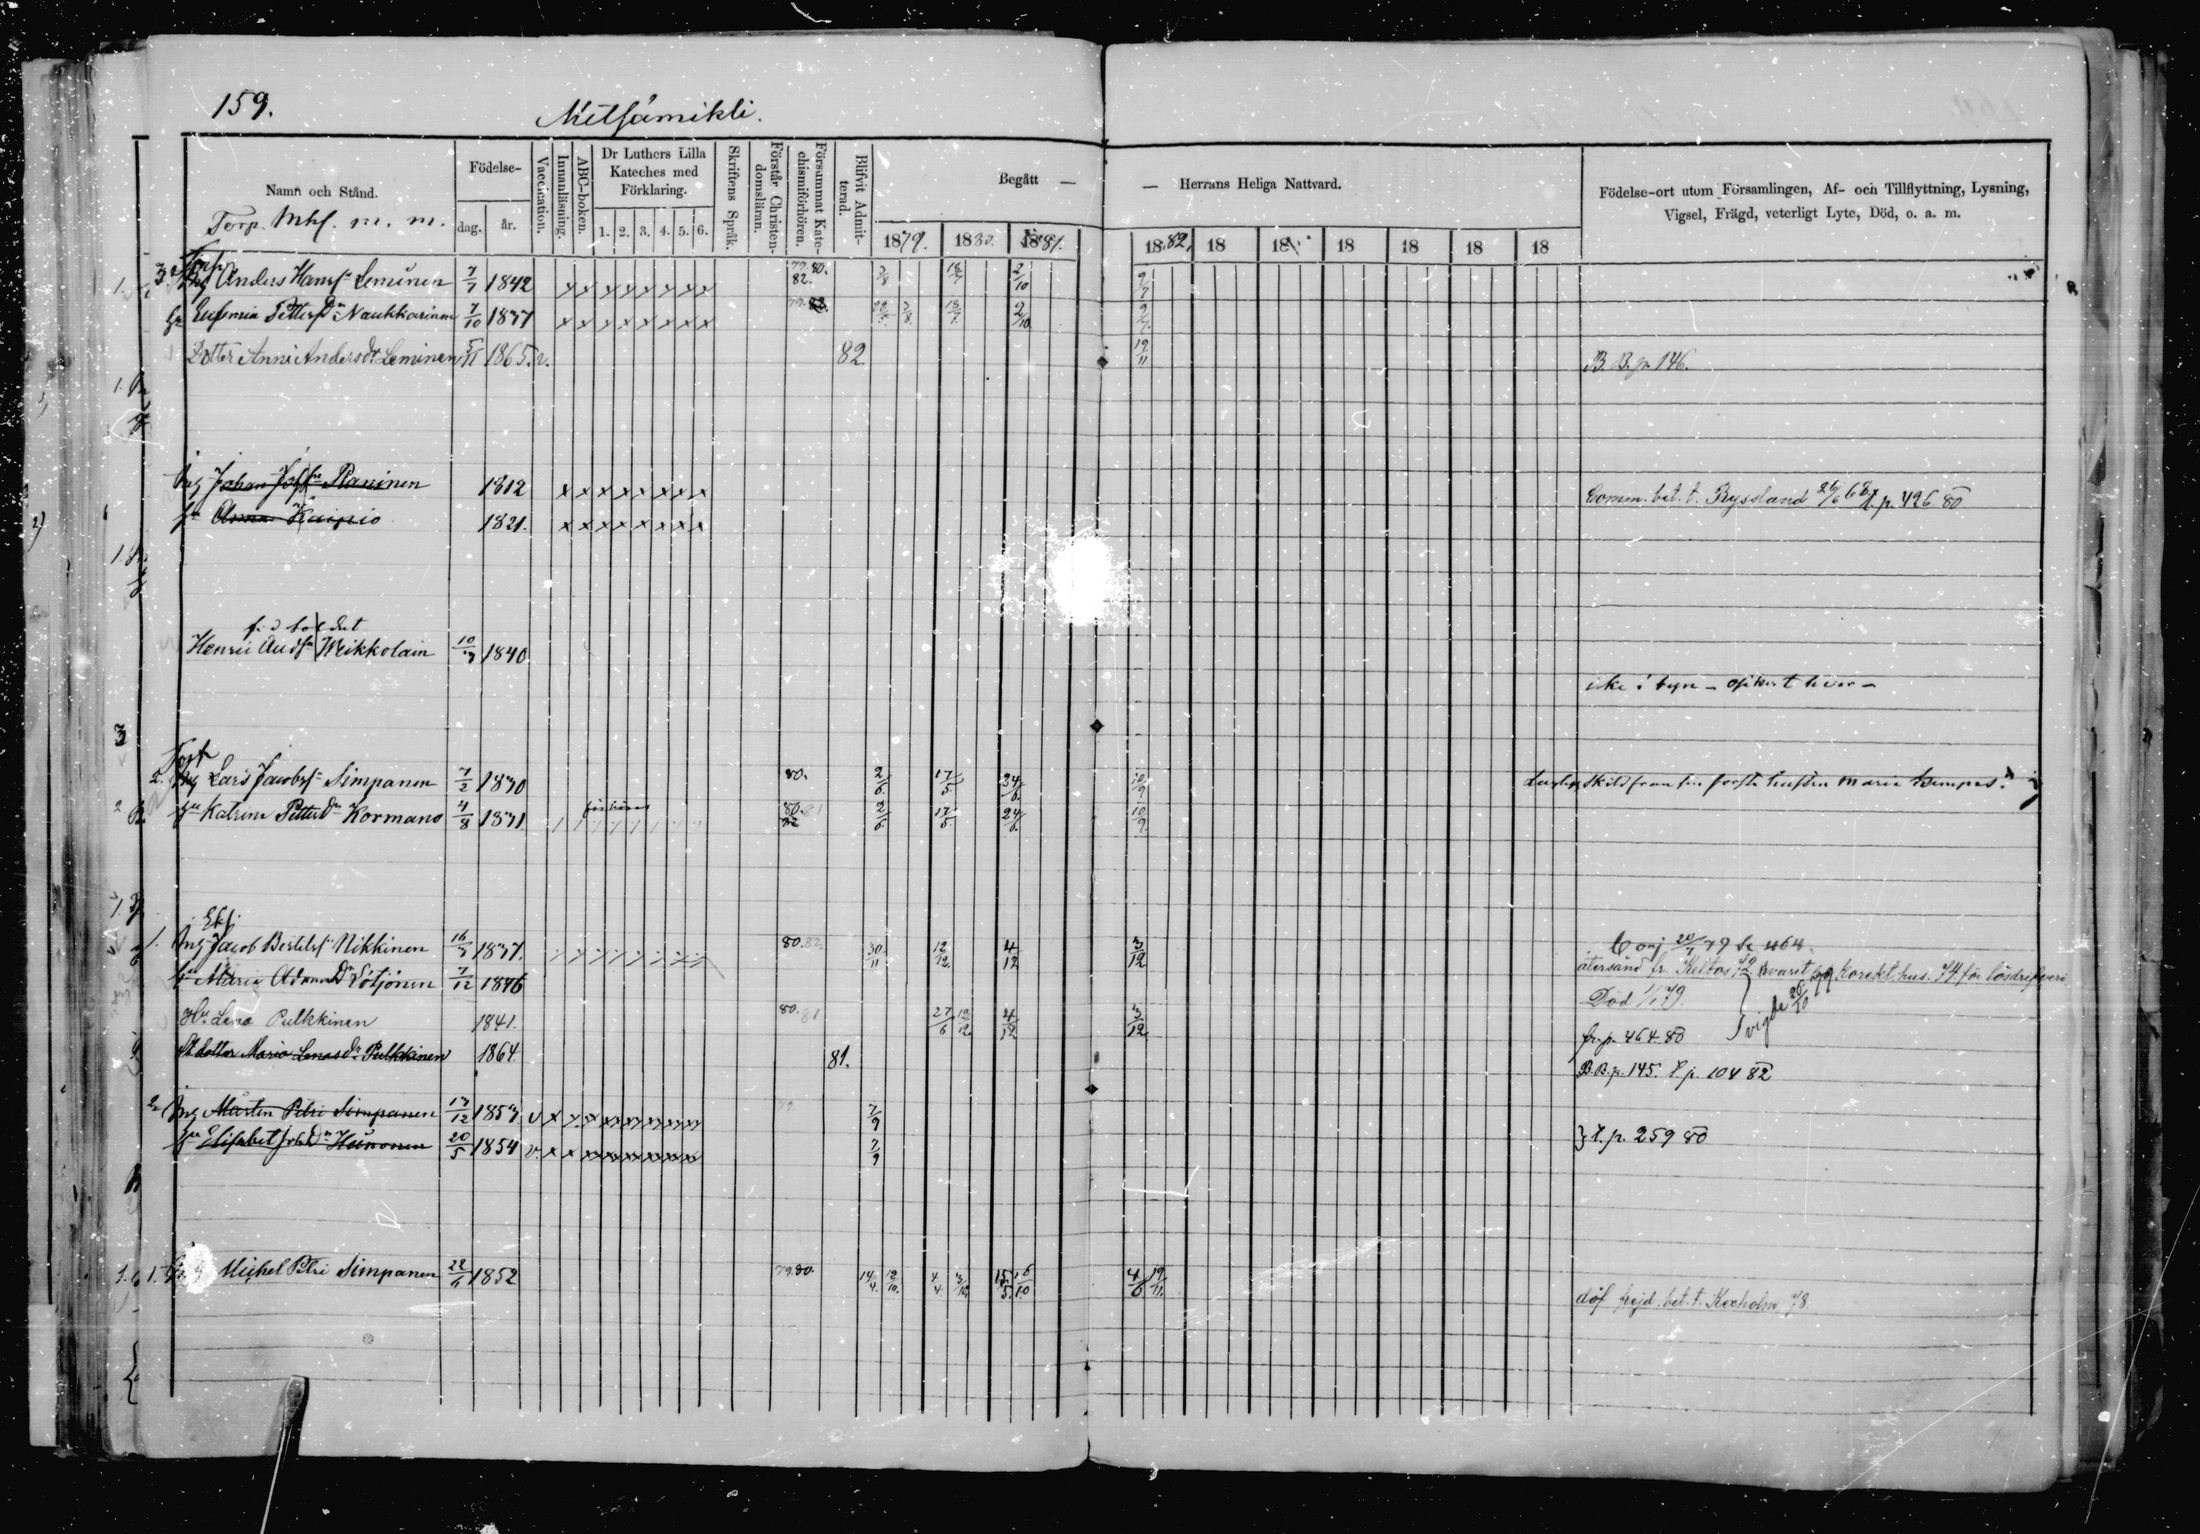 159.
Metsämikli.
Namn och Stånd.
Torp. Mhf. m. m.
Födelse-
dag.
år.
Vaccination.
Innanläsning.
ABC-boken.
Dr Luthers Lilla
Kateches med
Förklaring.
1. 2. 3. 4. 5. 6.
Skriftens Språk.
Förstår Christen-
domsläran.
Försummat Kate-
chismiförhören.
Blifvit Admit-
terad.
Begått —
— Herrans Heliga Nattvard.
1879. 1880. 1881. 1882. 18 18 18 18 18 18
Födelse-ort utom Församlingen, Af- och Tillflyttning, Lysning,
Vigsel, Frägd, veterligt Lyte, Död, o. a. m.
Torp
Anders Hansf. Leminen 7/7 1842 x x x x x x x x 79. 80. 82. 3/8 18/7 2/10 9/7
hu Eufemia Petterdr Naukkarinen 7/10 1837 x x x x x x x x 79. 82. 3/8 18/7 2/10 9/7
Dotter Anni Andersdr Leminen 5/11 1865. v. 82 19/11 B. B. p. 146.
Ing Johan Planinen 1812 x x x x x x x x Comm. bet. t. Ryssland 26/6 68 t. p. 426 80
hu Anna Kaipio 1821. x x x x x x x x
Henric Andsn Weikkolain 10/3 1840
icke i byn — osäkert hvar —
Torp
2. Ing Lars Jacobsn Simpanen 7/2 1830 80. 2/6 17/5 24/6 10/9 Lagligen skild från sin första hustru Maria
hu Katrina Petterdr Kormano 4/8 1831 80. 81 82 2/6 17/5 24/6 10/9
1. Ing Jacob Bertilsn Nikkinen 16/3 1837. 80. 82. 30/11 12/12 4/12 3/12 20/7 79 464.
hu Maria Adamsdr Sotjonen 7/12 1846 återsänd fr.
Död 1/1 79.
hu Lena Pulkkinen 1841. 80. 81 27/6 12/12 4/12 3/12 fr. p. 464 80
vigde 26/10 79
St dotter Maria Lenasdr Pulkkinen 1864 81. B. B. p. 145. t. p. 104 82
2. Ing Mårten Petri Simpanen 13/12 1853 v x x x x x x x x 7/9
hu Elisabet Joh. Dr Heinonen 20/5 1854 v. x x x x x x x x 7/9 } t. p. 259 80
1. Michel Petri Simpanen 22/6 1852 79. 80. 14/4 12/10 4/4 3/10 15/5 16/10 4/6 19/11
döf frejd. bet. t. Kexholm 78.